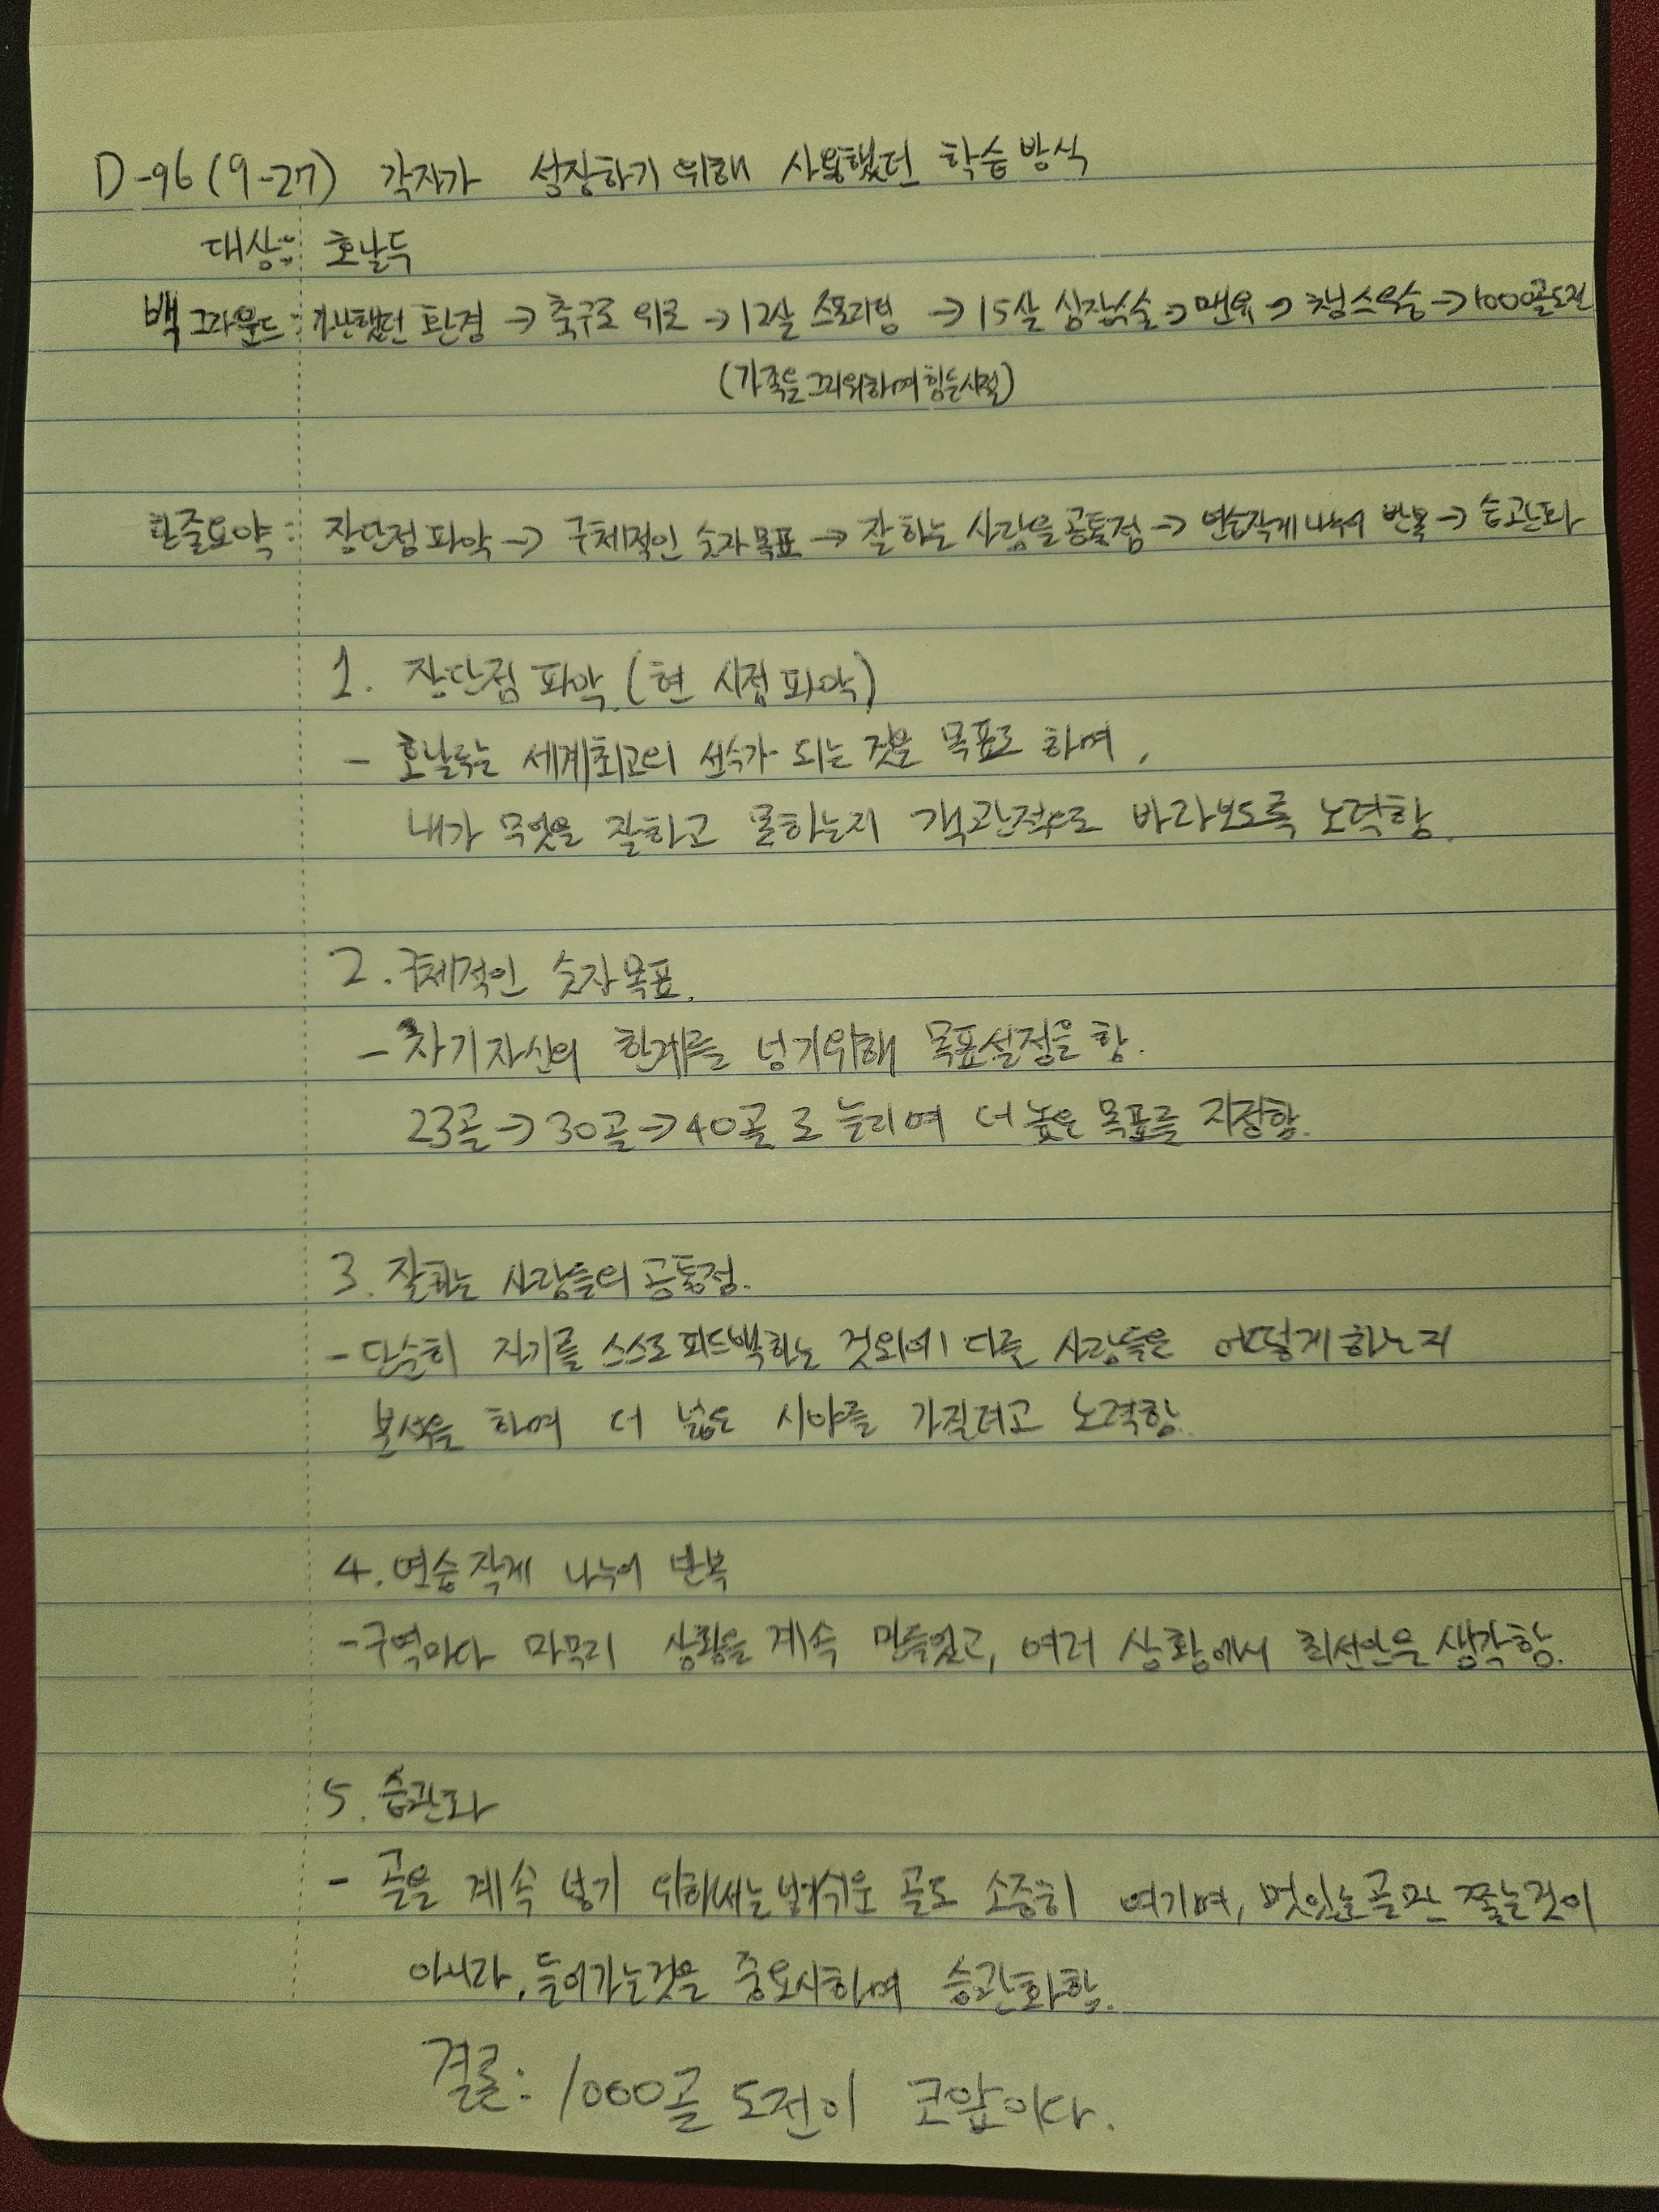 D-96(9-27) 각자가 성장하기 위해 사용했던 학습 방식
대상: 호날두
백그라운드: 가난했던 환경 → 축구로 위로 → 12살 스포르팅 → 15살 심장수술 → 맨유 → 챔스우승 → 1000골도전
(가족을 그리워하며 힘든시절)
한줄요약: 장단점 파악 → 구체적인 숫자 목표 → 잘하는 사람을 공통점 → 연습작게 나누어 반복 → 습관화
1. 장단점 파악 (현 시점 파악)
- 호날두는 세계최고의 선수가 되는 것을 목표로 하며,
내가 무엇을 잘하고 못하는지 객관적으로 바라보도록 노력함.
2. 구체적인 숫자 목표.
- 자기자신의 한계를 넘기위해 목표설정을 함.
23골 → 30골 → 40골 로 늘리며 더 높은 목표를 지정함.
3. 잘하는 사람들의 공통점.
- 단순히 자기를 스스로 피드백하는 것외에 다른 사람들은 어떻게 하는지
분석을 하며 더 넓은 시야를 가질려고 노력함.
4. 연습 작게 나누어 반복
- 구역마다 마무리 상황을 계속 만들었고, 여러 상황에서 최선안을 생각함.
5. 습관화
- 골을 계속 넣기 위해서는 넣기쉬운 골도 소중히 여기며, 멋있는 골만 쫓는것이
아니라, 들어가는것을 중요시하며 습관화함.
결론: 1000골 도전이 코앞이다.